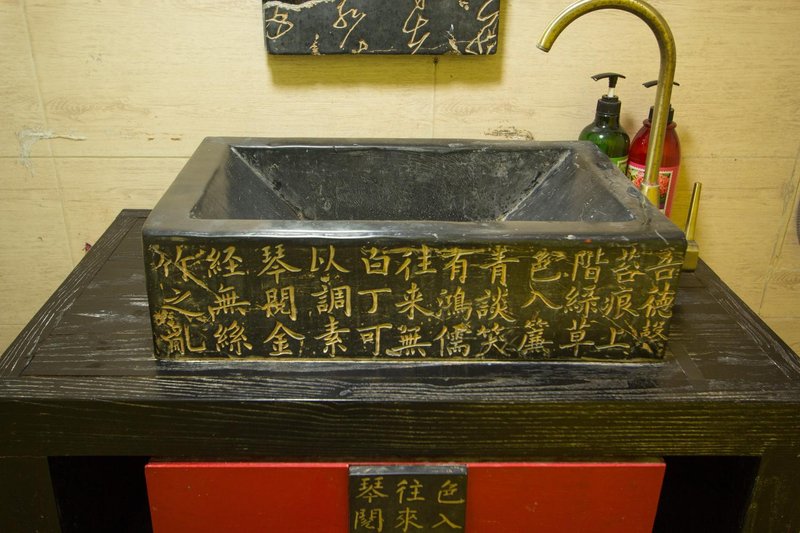 吾德馨
苔痕上
階緑草
色入簾
青談笑
有鴻儒
往来無
百丁可
以調素
琴閲金
経無絲
之亂
色入
往來
琴閲